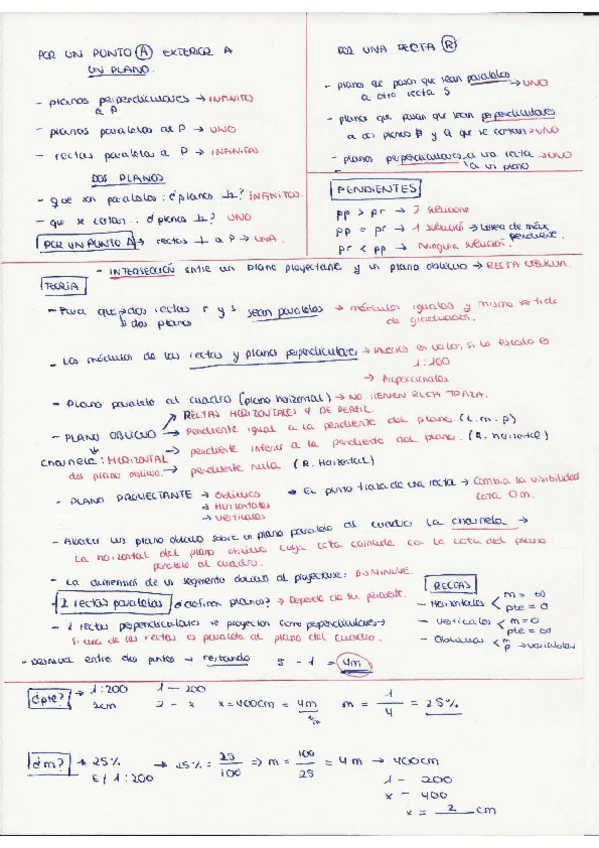 POR UN PUNTO (A) EXTERIOR A
UN PLANO.
- planos perpendiculares → INFINITO
a P
- planos paralelos al P → UNO
- rectas paralelas a P → INFINITAS
DOS PLANOS
- que son paralelos: ¿planos ⊥? INFINITOS.
- que se cortan.. ¿planos ⊥? UNO
POR UN PUNTO A → rectas ⊥ a P → UNA.
POR UNA RECTA (R)
- planos que pasan que sean paralelos → UNO
a otra recta S
- planos que pasan que sean perpendiculares
a dos planos P y Q que se cortan → UNO
- planos perpendiculares a una recta → UNO
a un plano
PENDIENTES
pp > pr → 2 soluciones
pp = pr → 1 solución → Línea de máx. pendiente.
pr < pp → Ninguna solución.
- INTERSECCIÓN entre un plano proyectante y un plano oblicuo → RECTA OBLICUA.
TEORÍA
- Para que dos rectas r y s sean paralelas → módulos iguales y mismo sentido
dos planos de graduación.
- Los módulos de las rectas y planos perpendiculares → inversos en valor, si la escala es
1:100
→ proporcionales
- Plano paralelo al cuadro (plano horizontal) → NO TIENEN RECTA TRAZA.
RECTAS HORIZONTALES Y DE PERFIL.
- PLANO OBLICUO → Pendiente igual a la pendiente del plano (L.m.p)
→ pendiente inferior a la pendiente del plano. (R. horizontal)
charnela: HORIZONTAL
del plano oblicuo. → pendiente nula (R. Horizontal)
- PLANO PROYECTANTE → Oblicuos
→ Horizontales
→ verticales
* El punto traza de una recta → Cambia la visibilidad
cota 0m.
- Abatir un plano oblicuo sobre un plano paralelo al cuadro la charnela →
La horizontal del plano oblicuo cuya cota coincide con la cota del plano
paralelo al cuadro.
- La dimensión de un segmento oblicuo al proyectarse: DISMINUYE.
- 2 rectas paralelas ¿definen planos? → Depende de su pendiente.
- 2 rectas perpendiculares se proyectan como perpendiculares →
Si una de las rectas es paralela al plano del cuadro.
- Desnivel entre dos puntos → restando 5 - 1 = 4m
RECTAS
- Horizontales < m = ∞
pte = 0
- verticales < m = 0
pte = ∞
- Oblicuas < m
p → variables
¿pte? → 1:200 1 — 200
2cm 2 - x x = 400cm = 4m m = 1/4 = 25%
¿m? → 25%
E/ 1:200
→ 25% = 25/100 ⇒ m = 100/25 = 4m → 400cm
1 — 200
x — 400
x = 2 cm